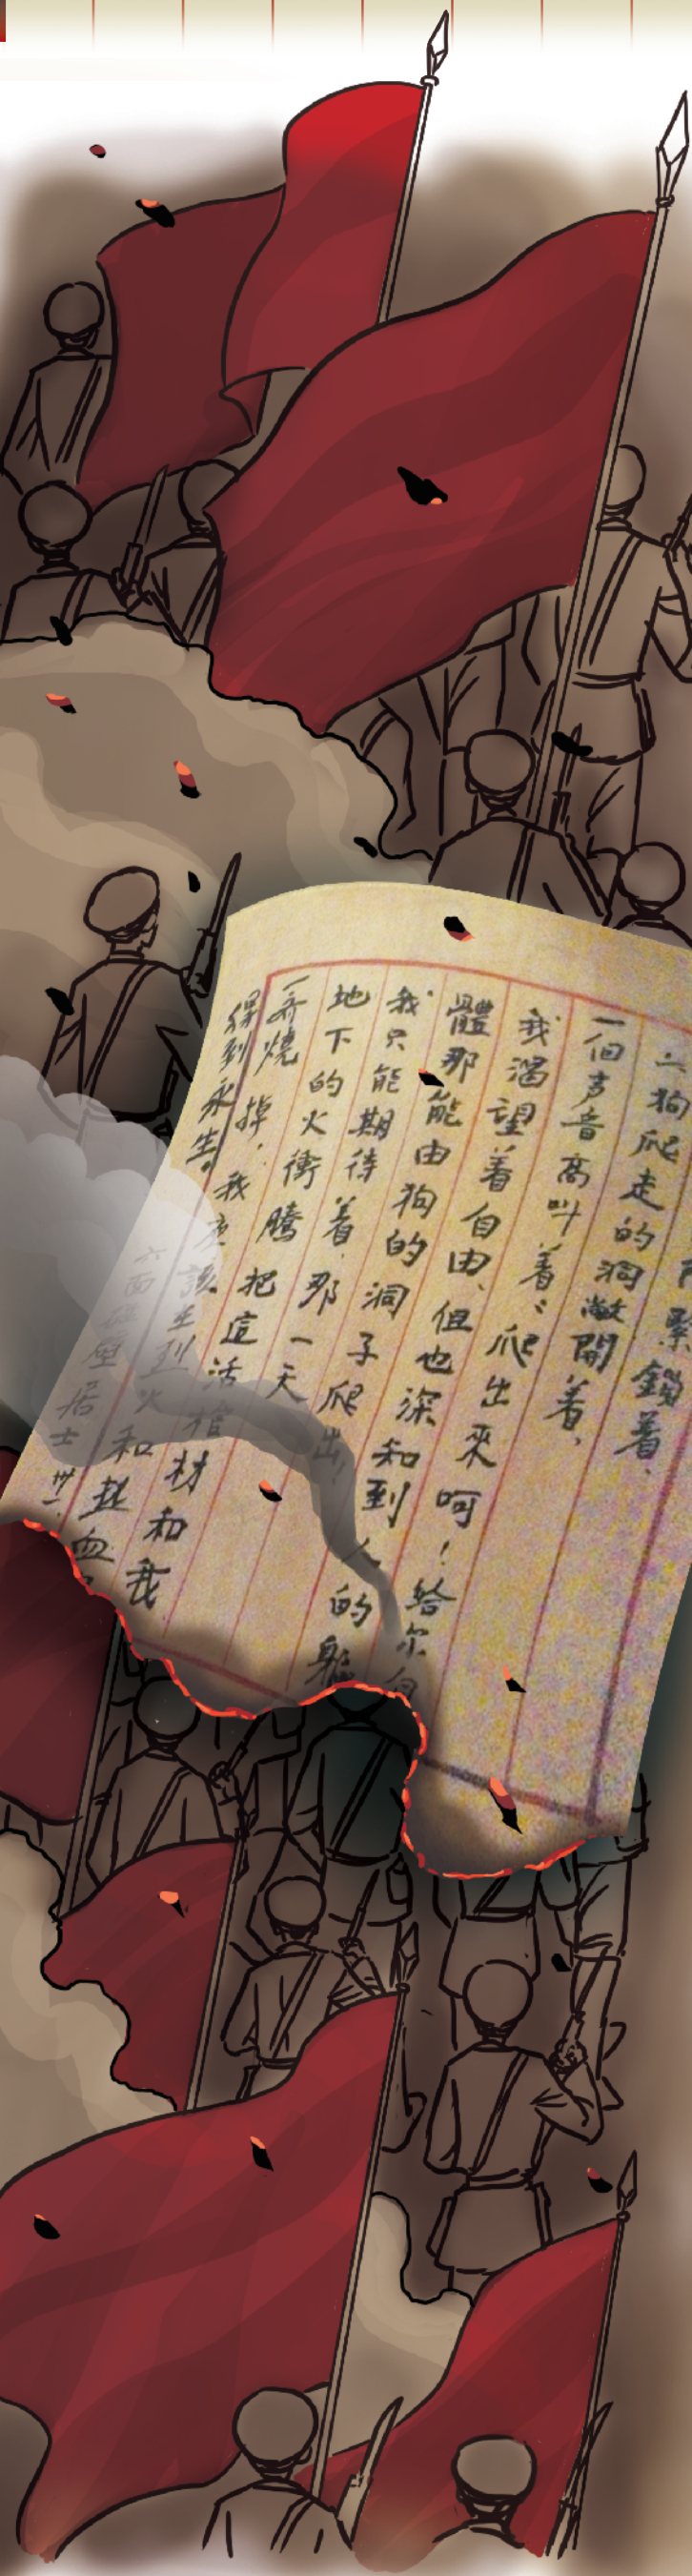 緊鎖着、
狗爬走的洞敞開着、
一個声音高叫着：爬出來呵！給尔自
我渴望着自由、但也深知到人的軀
體那能由狗的洞子爬出！
我只能期待着、那一天
地下的火衝騰把這活棺材和我
一齊燒掉，我應該在烈火和熱血
得到永生。
六面碰壁居士 卅一